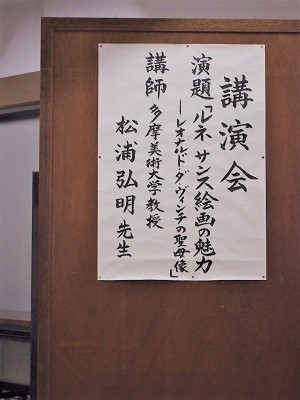 講演会
演題「ルネサンス絵画の魅力
―レオナルド・ダ・ヴィンチの聖母像―」
講師 多摩美術大学教授
松浦弘明先生